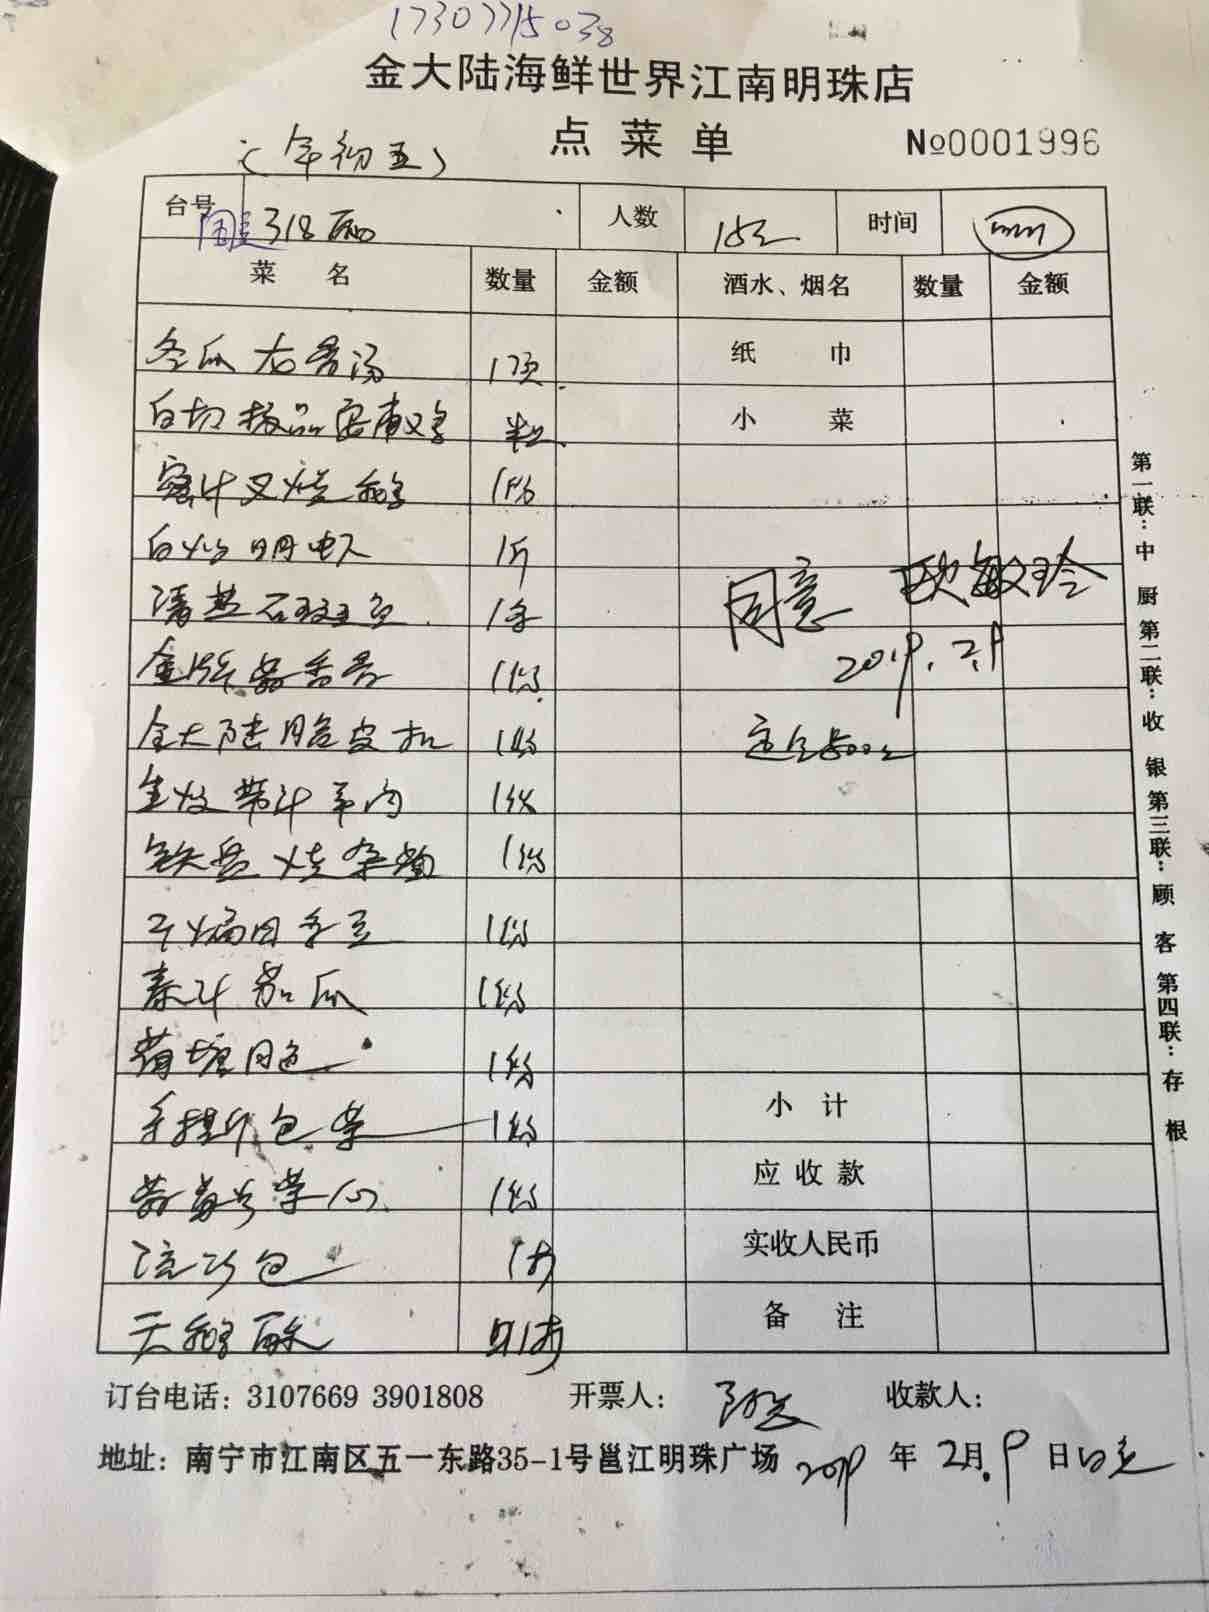 17307715038
金大陆海鲜世界江南明珠店
点菜单 №0001996
(年初五)
台号 318 人数 时间
菜名 数量 金额 酒水、烟名 数量 金额
冬瓜 骨汤 纸巾
白切 小菜
蜜汁叉烧 1份
白灼明虾 1斤
清蒸石斑鱼 1条
同意 欧敏玲
2019.2.9
金牌蒜香骨 1份
金大陆脆皮扣 1份 定金500元
生炆带汁羊肉 1份
铁盘烧 1份
干煸四季豆 1份
秦汁茄瓜 1份
荷塘月色 1份
手撕包菜 1份 小计
菜心 1份 应收款
流沙包 1打 实收人民币
天鹅酥 1打 备注
订台电话:3107669 3901808 开票人: 收款人:
地址:南宁市江南区五一东路35-1号邕江明珠广场 2019年2月9日
第一联:中厨 第二联:收银 第三联:顾客 第四联:存根